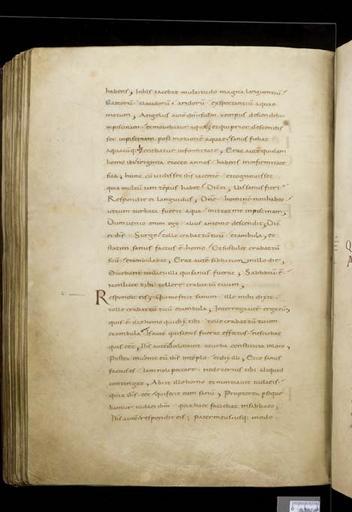 habens, In his iacebat multitudo magna languentiu
caecoru claudoru aridoru expectantiu aquae
motum, Angelus aute
in piscinam
in piscinam post motione aquae sanus fiebat
Erat aute quidam
homo ibi triginta et octo annos habens in infirmitate
sua, hunc cu vidisset ihs iacente et cognovisset
quia multu iam tempus habet dicit ei, Vis sanus fieri
Respondit ei languidus, Dne homine non habeo
ut cum turbata fuerit aqua mittat me in piscinam,
Dum venio enim ego alius ante me descendit, Dicit
ei ihs Surge tolle grabattu tuu et ambula, et
statim sanus factus e homo et sustulit grabattu
suu et ambulabat, Erat aute sabbatum in illo die,
Dicebant iudaei illi qui sanus fuerat, Sabbatu e
non licet tibi tollere grabattu tuum,
Respondit eis, qui me fecit sanum ille mihi dixit
tolle grabattu tuu et ambula, Interrogaverunt ergo eu
quis e ille homo qui dixit tibi tolle grabattu tuum
et ambula, Is aute qui sanus fuerat effectus nesciebat
quis esset, Ihs aute declinavit turba constituta in loco,
Postea invenit eu ihs in templo et dixit illi, Ecce sanus
factus es iam noli peccare ne deterius tibi aliquid
contingat, Abiit ille homo et nuntiavit iudaeis
quia ihs esset qui fecit eum sanu, Propterea perseque
bantur iudaei ihm quia haec faciebat in sabbato,
Ihs aute respondit eis, pater meus usq modo